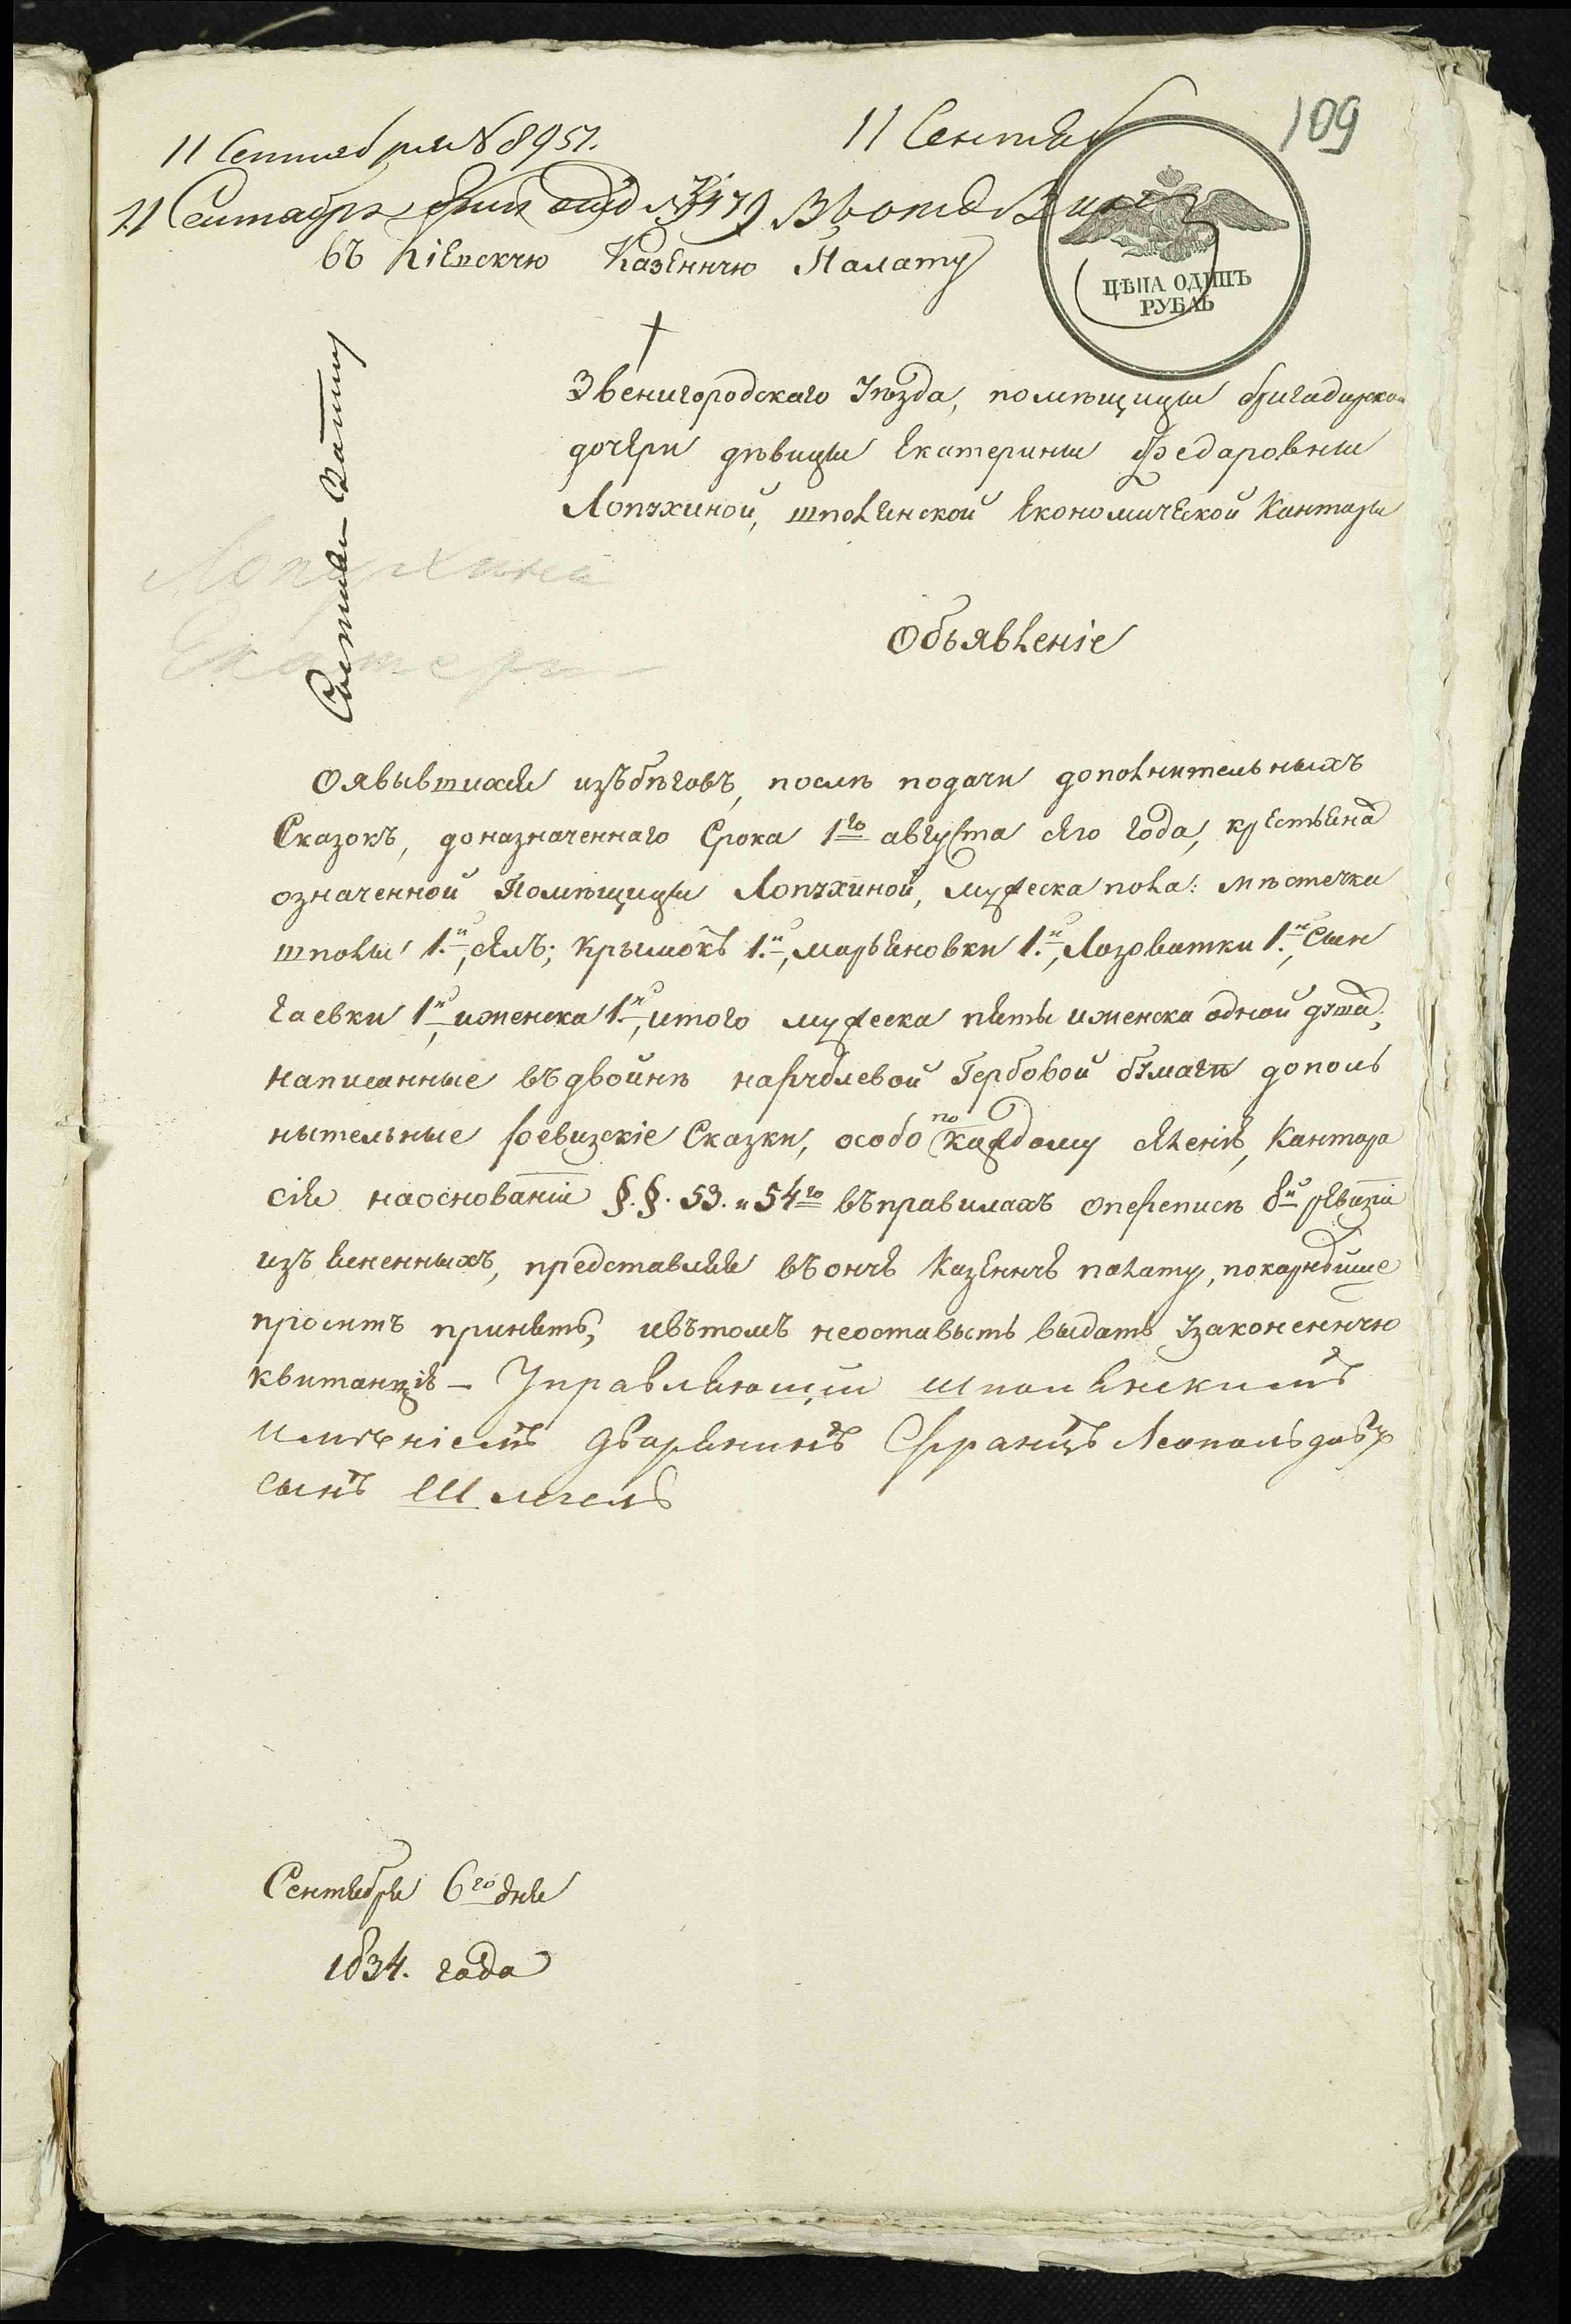 109
11 Сентября № 8951.
11 Сентяб
11 Сентября
въ Кіевскую Казенную Палату
ЦѢНА ОДИНЪ
РУБЛЬ
Звенигородскаго Уѣзда, помѣщицы бригадирской
дочери дѣвицы Екатерины Федаровны
Лопухиной, шполянской Економической Канторы
Лопухина
Екатери
Объявленіе
Оявывшихся изъ бѣговъ, послѣ подачи дополнительныхъ
Сказокъ, до назначеннаго Срока 1го августа сего года, крестьянахъ
означенной Помѣщицы Лопухиной, мужеска пола: мѣстечка
шполы 1.й, селъ; Крымокъ 1.й, марьяновки 1.й, Лозоватки 1.й, Сиг
наевки 1й, и женска 1.й, итого мужеска пяты и женска одной душа,
написанные въ двойнѣ на рублевой Гербовой бумаги дополь
нытельные ревизскіе Сказки, особо по каждому селенію, Кантора
сія на основаніи §.§. 53. и 54го въ правилахъ о переписѣ 8й ревизіи
изъясненныхъ, представляя въ ону Казенну палату, покарнѣйше
проситъ принять, и въ томъ не оставыть выдать узаконенную
квитанцію — Управляющій Шполянскимъ
имѣніемъ дворянинъ Францъ Леопольдовъ
сынъ Шлегель
Сентября 6го дня
1834. года